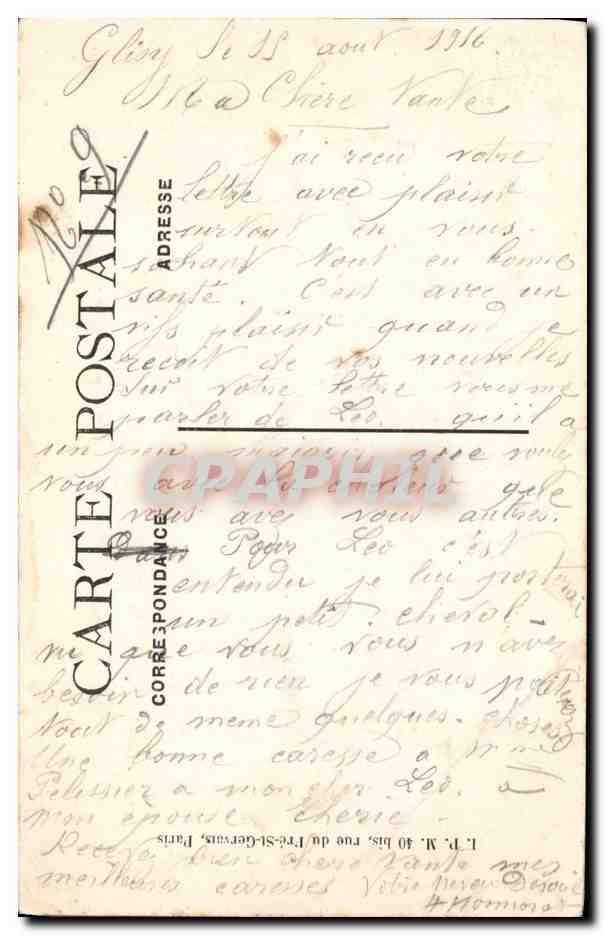 Glisy le 15 aout. 1916
Ma Chère Tante
J'ai reçu votre
lettre avec plaisir
surtout en vous
sachant tout en bonne
santé. C'est avec un
vifs plaisir quand je
recoit de vos nouvelles
Sur votre lettre vous me
parler de Leo. qu'il a
un peu maigri que voulez
vous avec les chaleurs que
vous avez vous autres.
Pour Leo c'est
entendu je lui porterai
un petit. cheval
vu que vous vous n'avez
besoin de rien je vous
tout de meme quelques. choses
Une bonne caresse a Mme
Pelissier a mon cher Leo. a
mon épouse cherie.
Recevez bien chere Tante mes
meilleures caresses Votre neveu Désiré
Honnorat
CARTE POSTALE
CORRESPONDANCE
ADRESSE
I. P. M. 40 bis, rue du Pré-St-Gervais, Paris
CPAPHIL